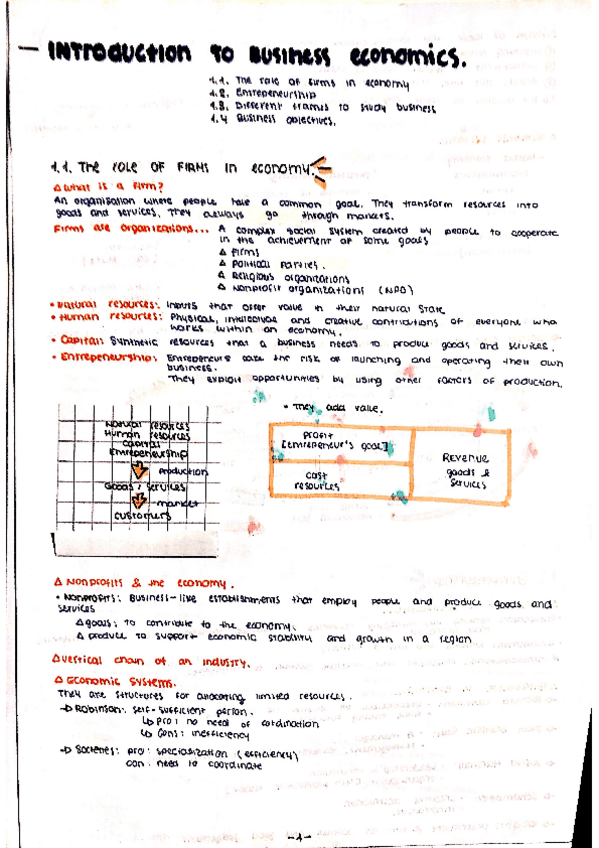 – INTRODUCTION TO BUSINESS ECONOMICS.
1.1. The role of firms in economy
1.2. Entrepeneurship
1.3. Different frames to study business
1.4 Business objectives.
1.1. The role of firms in economy.
△ What is a firm?
An organisation where people have a common goal. They transform resources into
goods and services. They always go through markets.
Firms are organizations... A complex social system created by people to cooperate
in the achievement of some goals
△ Firms
△ Political Parties.
△ Religious organizations
△ Nonprofit organizations (NPO)
• Natural resources: Inputs that offer value in their natural state
• Human resources: Physical, intelectual and creative contributions of everyone who
works within an economy.
• Capital: Synthetic resources that a business needs to produce goods and services.
• Entrepeneurship: Entrepeneurs take the risk of launching and operating their own
business.
They exploit opportunities by using other factors of production.
• They add value.
Natural resources
Human resources
Capital
Entrepeneurship
production
Goods / services
market
customers
Profit
[Entrepreneur's goal]
Cost
resources
Revenue
goods &
services
△ Nonprofits & the economy.
• Nonprofits: Business-like establishments that employ people and produce goods and
services
△ goals: to contribute to the economy.
△ produce to support economic stability and growth in a region
△ Vertical chain of an industry.
△ Economic systems.
They are structures for allocating limited resources.
→ Robinson: self-sufficient person.
↳ Pro: no need of cordination
↳ Cons: inefficiency
→ Societies: pro: specialization (efficiency)
con: need to coordinate
-1-